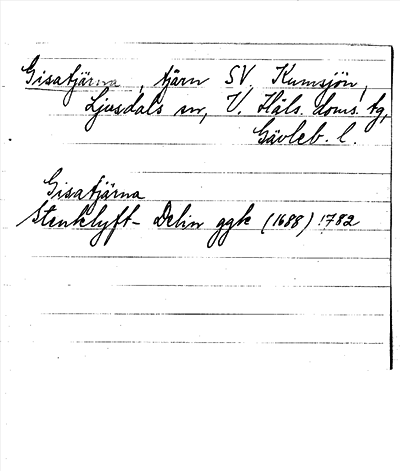 Gisatjärna, tjärn SV Kumsjön,
Ljusdals sn, V. Häls. doms. tg,
Gävleb. l.
Gisatjärna
Stenklyft- Delin ggk (1688) 1782